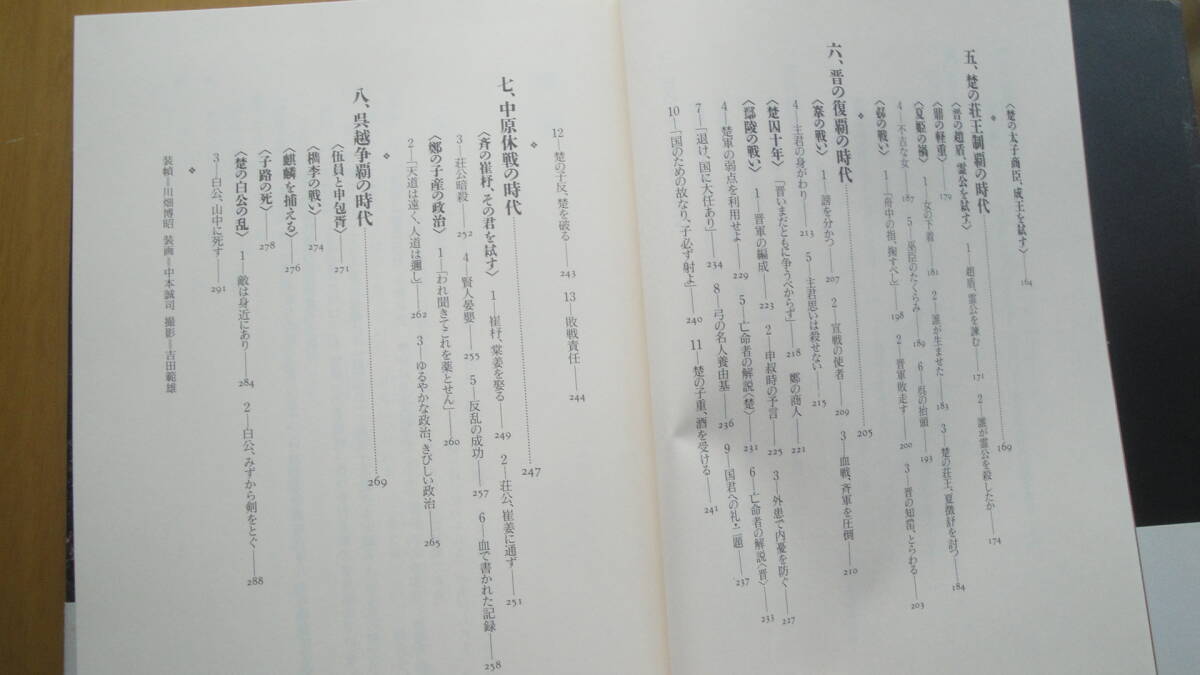 〈楚の太子商臣、成王を弑す〉——164
五、楚の荘王制覇の時代……169
〈晋の趙盾、霊公を弑す〉 1—趙盾、霊公を諫む——171 2—誰が霊公を殺したか——174
〈鼎の軽重〉——179
〈夏姫の禍〉 1—女の下着——181 2—誰が生ませた——183 3—楚の荘王、夏徴舒を討つ——184
4—不吉な女——187 5—巫臣のたくらみ——189 6—呉の抬頭——193
〈邲の戦い〉 1—「舟中の指、掬すべし」——198 2—晋軍敗走す——200 3—晋の知罃、とらわる——203
六、晋の復覇の時代……205
〈鞌の戦い〉 1—謗を分かつ——207 2—宣戦の使者——209 3—血戦、斉軍を圧倒——210
4—主君の身がわり——213 5—主君思いは殺せない——215
〈楚囚十年〉 「晋いまだともに争うべからず」——218 鄭の商人——221
〈鄢陵の戦い〉 1—晋軍の編成——223 2—申叔時の予言——225 3—外患で内憂を防ぐ——227
4—楚軍の弱点を利用せよ——229 5—亡命者の解説〈楚〉——231 6—亡命者の解説〈晋〉——233
7—「退け、国に大任あり」——234 8—弓の名人養由基——236 9—国君への礼・二題——237
10—「国のための故なり、子必ず射よ」——240 11—楚の子重、酒を受ける——241
12—楚の子反、楚を破る——243 13—敗戦責任——244
七、中原休戦の時代……247
〈斉の崔杼、その君を弑す〉 1—崔杼、棠姜を娶る——249 2—荘公、崔姜に通ず——251
3—荘公暗殺——252 4—賢人晏嬰——255 5—反乱の成功——257 6—血で書かれた記録——258
〈鄭の子産の政治〉 1—「われ聞きてこれを薬とせん」——260
2—「天道は遠く、人道は邇し」——262 3—ゆるやかな政治、きびしい政治——265
八、呉越争覇の時代……269
〈伍員と申包胥〉——271
〈檇李の戦い〉——274
〈麒麟を捕える〉——276
〈子路の死〉——278
〈楚の白公の乱〉 1—敵は身近にあり——284 2—白公、みずから剣をとぐ——288
3—白公、山中に死す——291
装幀=川畑博昭 装画=中本誠司 撮影=吉田範雄